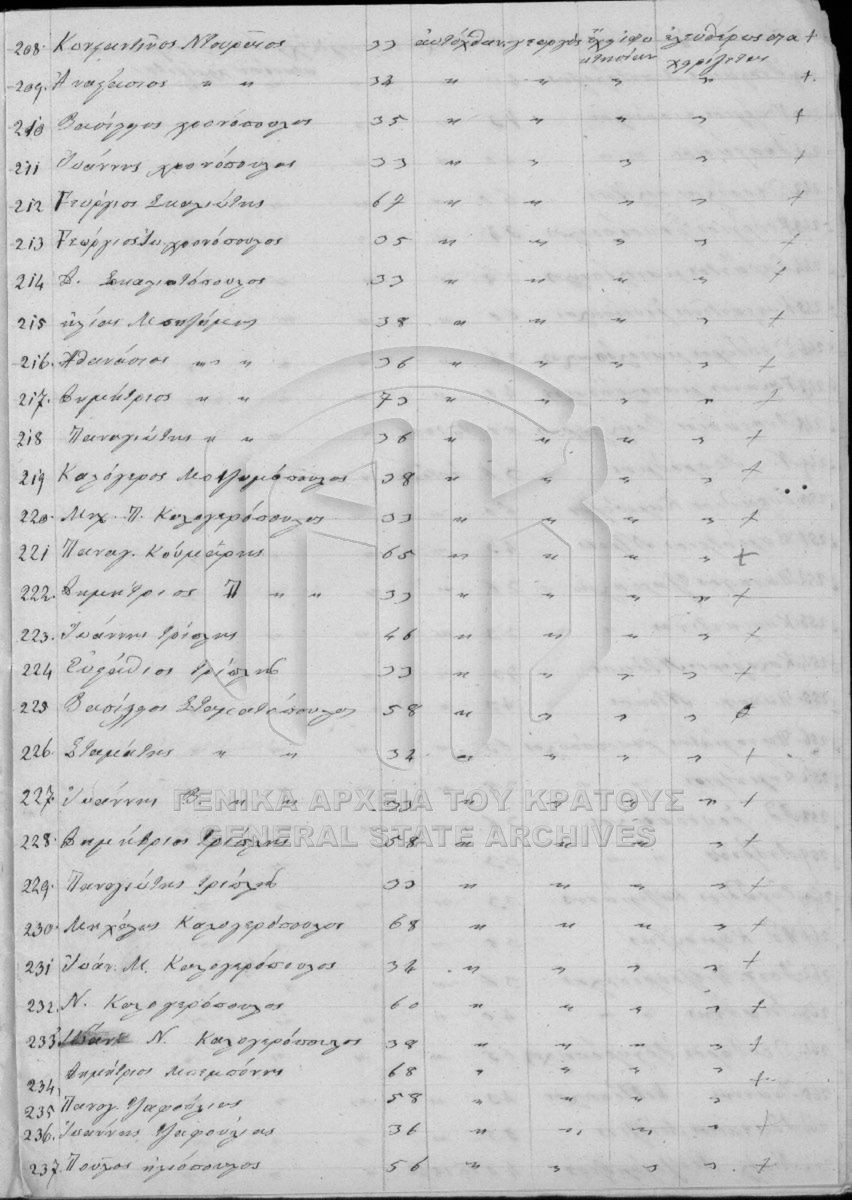 208. Κωνσταντῖνος Ντουρῖτος 33 αὐτόχθων γεωργός ἔχει κτηματικήν ἐλευθέρως +
209. Ἀναστάσιος " " 34 " " " " +
210 Βασίλειος χρονόπουλος 35 " " " " +
211 Ἰωάννης χρονόπουλος 33 " " " " +
212 Γεώργιος Σκαλιώτης 67 " " " " +
213 Γεώργιος Ἰω χρονόπουλος 35 " " " " +
214 Δ. Σκαλιωτόπουλος 33 " " " " +
215 ἠλίας 38 " " " " +
216. Ἀθανάσιος " " 36 " " " " +
217. Δημήτριος " " 73 " " " " +
218 Παναγιώτης " " 36 " " " " +
219 Καλόγερος 38 " " " " +
220. Μιχ. Π. Καλογερόπουλος 33 " " " " +
221 Παναγ. Κουμάρης 65 " " " " +
222. Δημήτριος Π " " 33 " " " " +
223. Ἰωάννης τρίολης 46 " " " " +
224 Εὐστάθιος τρίολης 33 " " " " +
225 Βασίλειος Σταματόπουλος 58 " " " " +
226. Σταμάτης " " 34 " " " " +
227. Ἰωάννης Β " " 33 " " " " +
228. Δημήτριος τρίολης 58 " " " " +
229. Παναγιώτης τρίολης 33 " " " " +
230. Μιχάλης Καλογερόπουλος 68 " " " " +
231 Ἰωάν. Μ. Καλογερόπουλος 34 " " " " +
232. Ν. Καλογερόπουλος 60 " " " " +
233 Ν. Καλογερόπουλος 38 " " " " +
234 Δημήτριος Μπεμπόνης 68 " " " " +
235 Παναγ. τζαφούλιας 58 " " " " +
236. Ἰωάννης τζαφούλιας 36 " " " " +
237. Παῦλος ἠλιόπουλος 56 " " " " +
ΓΕΝΙΚΑ ΑΡΧΕΙΑ ΤΟΥ ΚΡΑΤΟΥΣ
GENERAL STATE ARCHIVES